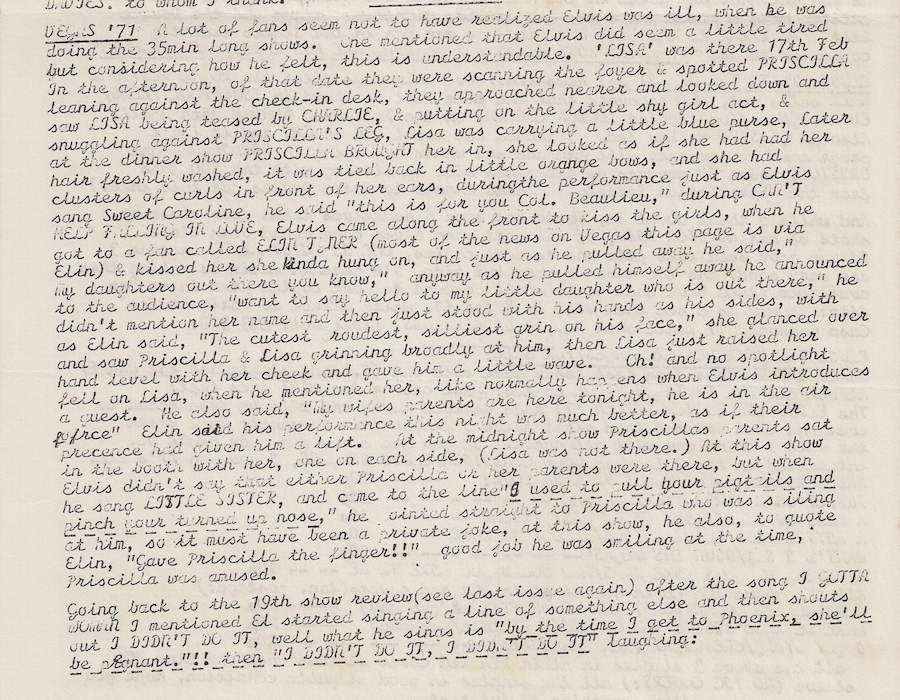 to whom I thank.
VEGAS '71 A lot of fans seem not to have realized Elvis was ill, when he was
doing the 35min long shows. One mentioned that Elvis did seem a little tired
but considering how he felt, this is understandable. 'LISA' was there 17th Feb
In the afternoon, of that date they were scanning the foyer & spotted PRISCILLA
leaning against the check-in desk, they approached nearer and looked down and
saw LISA being teased by CHARLIE, & putting on the little shy girl act, &
snuggling against PRISCILLA'S LEG, Lisa was carrying a little blue purse, Later
at the dinner show PRISCILLA BROUGHT her in, she looked as if she had had her
hair freshly washed, it was tied back in little orange bows, and she had
clusters of curls in front of her ears, duringthe performance just as Elvis
sang Sweet Caroline, he said "this is for you Col. Beaulieu," during CAN'T
HELP FALLING IN LOVE, Elvis came along the front to kiss the girls, when he
got to a fan called ELIN T NER (most of the news on Vegas this page is via
Elin) & kissed her she kinda hung on, and just as he pulled away he said,"
My daughters out there you know," anyway as he pulled himself away he announced
to the audience, "want to say hello to my little daughter who is out there," he
didn't mention her name and then just stood with his hands as his sides, with
as Elin said, "The cutest roudest, silliest grin on his face," she glanced over
and saw Priscilla & Lisa grinning broadly at him, then Lisa just raised her
hand level with her cheek and gave him a little wave. Oh! and no spotlight
fell on Lisa, when he mentioned her, like normally hap ens when Elvis introduces
a guest. He also said, "My wifes parents are here tonight, he is in the air
force" Elin said his performance this night was much better, as if their
precence had given him a lift. At the midnight show Priscillas parents sat
in the booth with her, one on each side, (Lisa was not there.) At this show
Elvis didn't say that either Priscilla or her parents were there, but when
he sang LITTLE SISTER, and came to the line"I used to pull your pigtails and
pinch your turned up nose," he ointed straight to Priscilla who was s iling
at him, so it must have been a private joke, at this show, he also, to quote
Elin, "Gave Priscilla the finger!!" good job he was smiling at the time,
Priscilla was amused.
Going back to the 19th show review(see last issue again) after the song I GOTTA
WOMAN I mentioned El started singing a line of something else and then shouts
out I DIDN'T DO IT, well what he sings is "by the time I get to Phoenix, she'll
be pregnant."!! then "I DIDN'T DO IT, I DIDN'T DO IT" laughing: